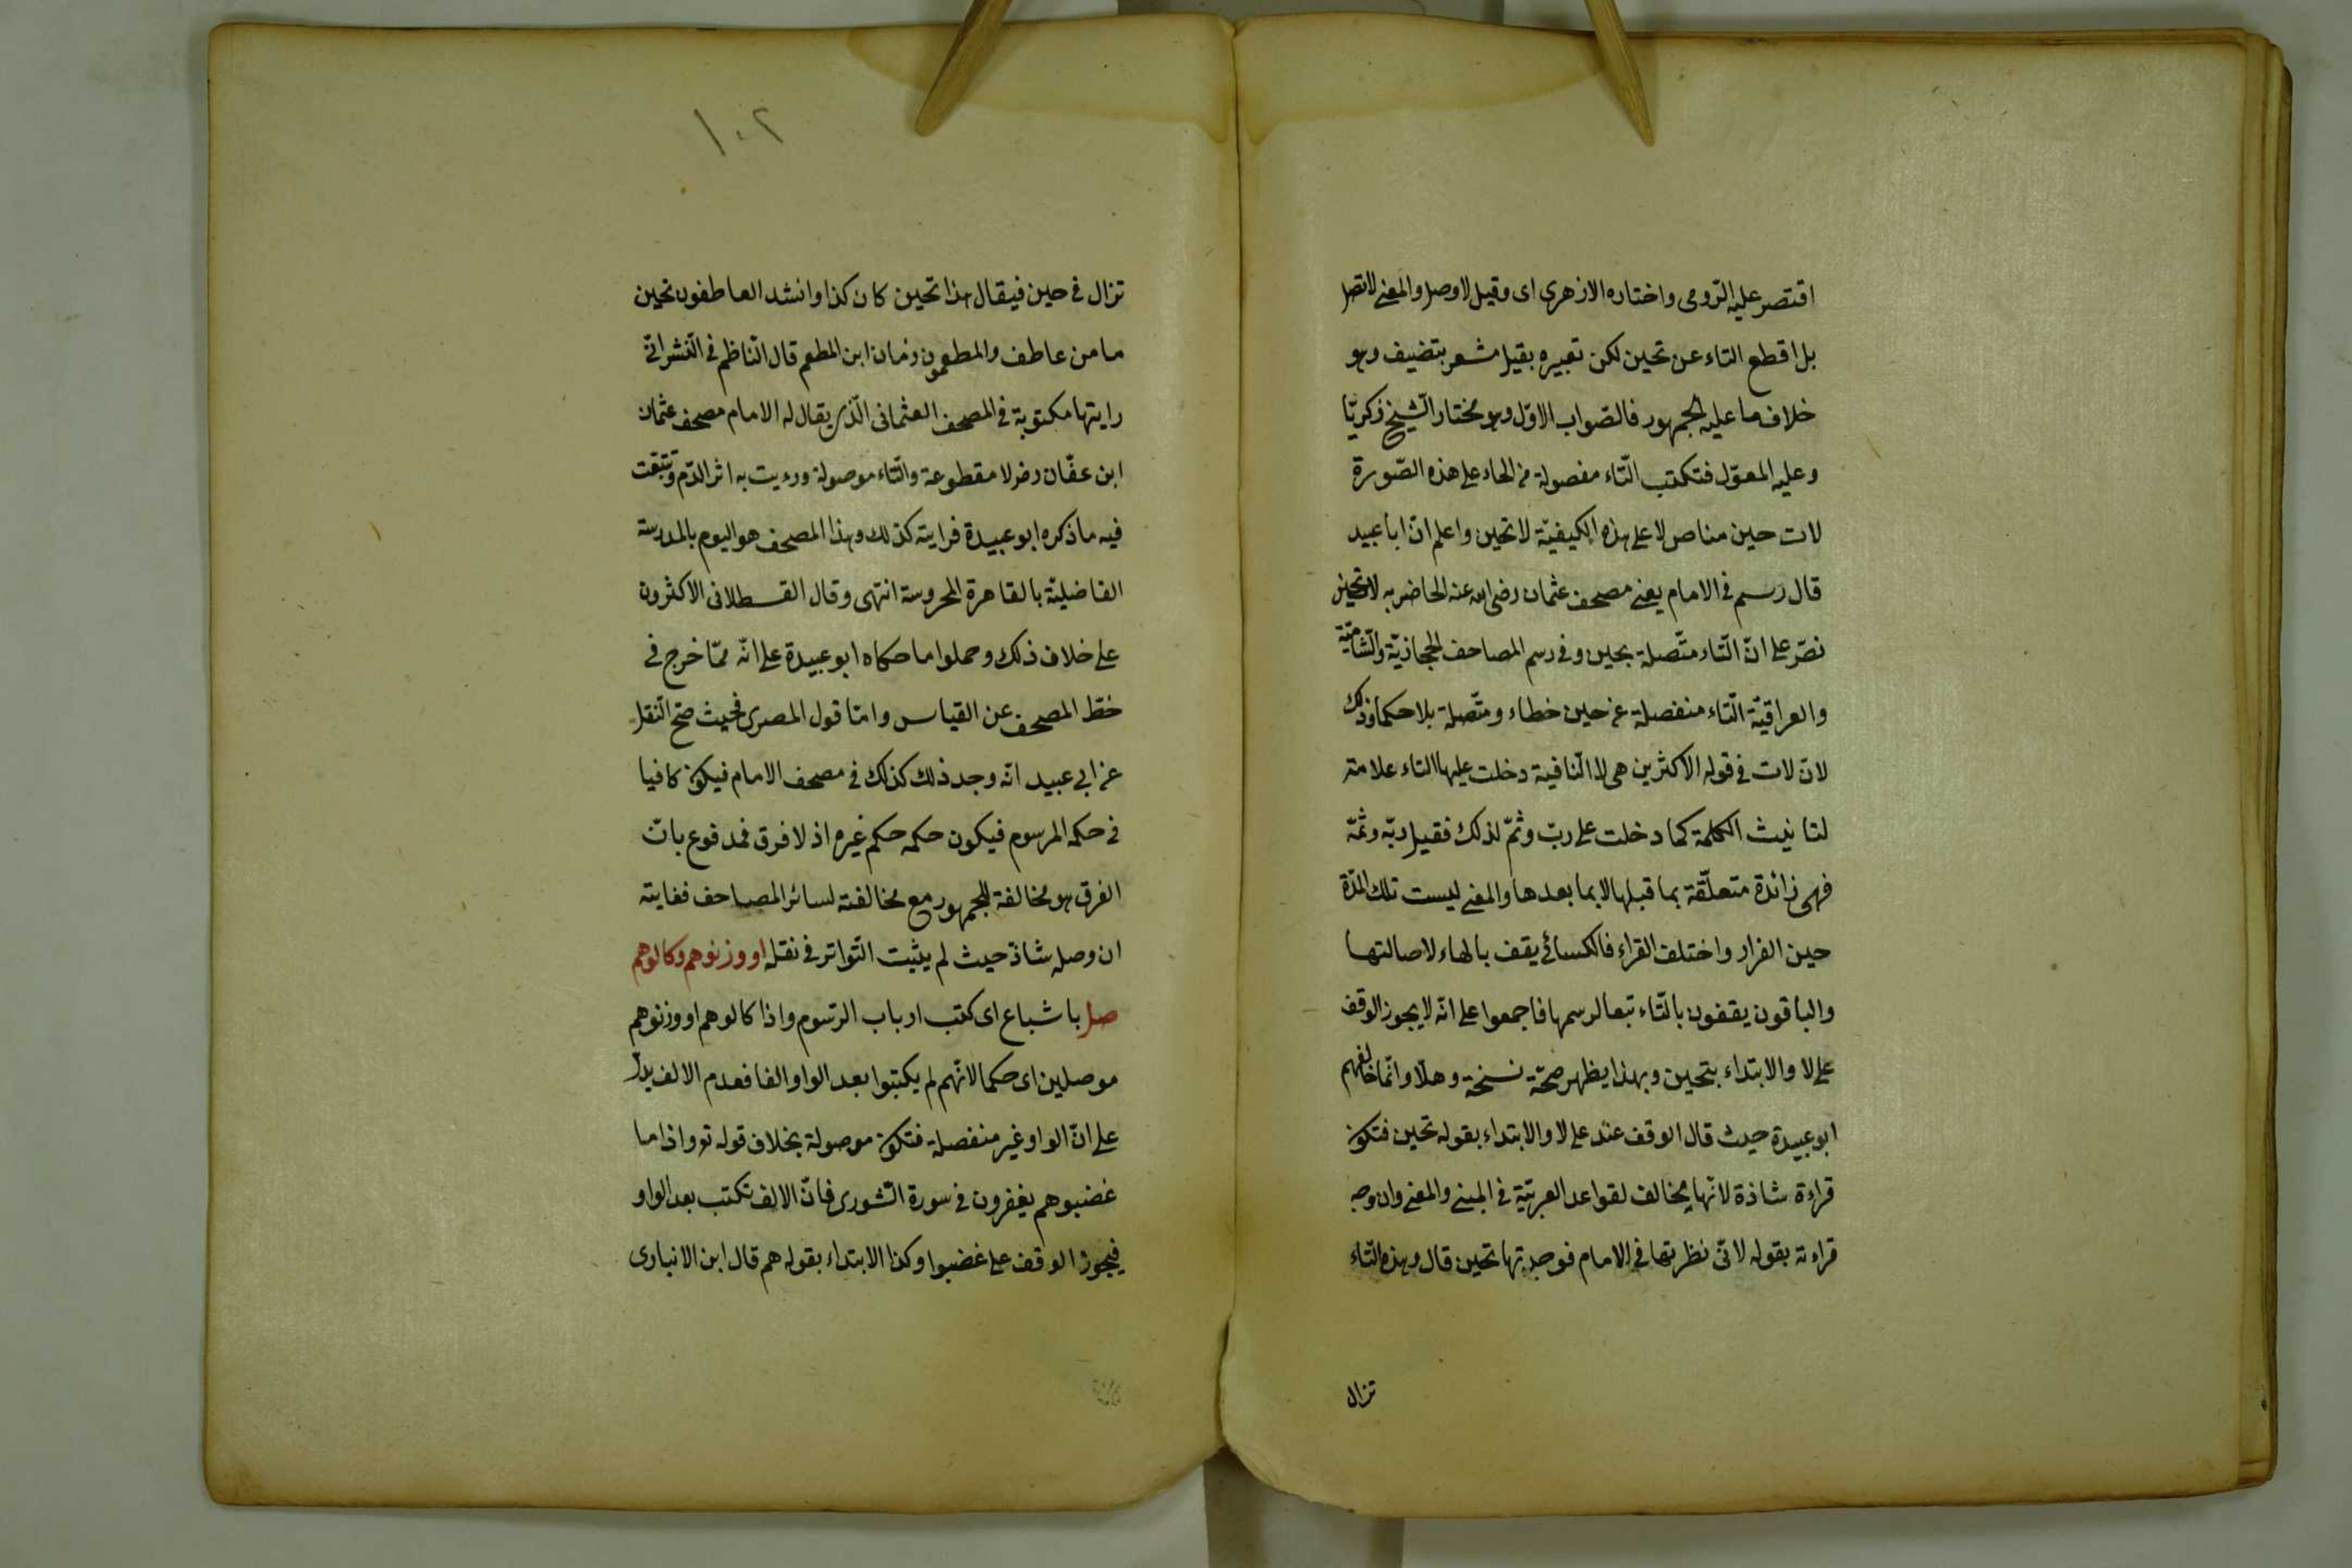 اقتصر عليه الرّومى واختاره الازهرى اى وقيل لا وصل والمعنى لا تصل
بل اقطع التاء عن تحين لكن تعبيره بقيل مشعر بتضيف وهو
خلاف ما عليه الجمهور فالصّواب الاوّل وهو مختار الشّيخ زكريّا
وعليه المعوّل فتكتب التّاء مفصولة من الحاء على هذه الصّورة
لات حين مناص لا على هذه الكيفيّة لا تحين واعلم انّ ابا عبيد
قال رسم فى الامام يعنى مصحف عثمان رضى الله عنه الحاضر به لا تحين
نصّ على انّ التّاء متّصلة بحين وفى رسم المصاحف الحجازيّة والشّاميّة
والعراقيّة التّاء منفصلة عن حين خطاء ومتّصلة بلا حكما وذلك
لانّ لات فى قوله الاكثرين هى لا النّافية دخلت عليها التاء علامة
لتانيث الكلمة كما دخلت على ربّ وثمّ لذلك فقيل ربّه وثمّه
فهى زائدة متعلّقة بما قبلها لا بما بعدها والمعنى ليست تلك المدّة
حين الفرار واختلف القراء فالكسائى يقف بالهاء لاصالتها
والباقون يقفون بالتّاء تبعا لرسمها فاجمعوا على انّه لا يجوز الوقف
على لا والابتداء بتحين وبهذا يظهر صحّة نسخة وهلّا وانّما خالفهم
ابو عبيدة حيث قال الوقف عند على لا والابتداء بقوله تحين فتكون
قراءة شاذة لانّها يخالف لقواعد العربيّة فى المبنى والمعنى وان وجه
قراءته بقوله لانّى نظرتها فى الامام فوجدتها تحين قال وهذه التّاء
تزال
١٠٢
تزال فى حين فيقال هذا تحين كان كذا وانشد العاطفون تحين
ما من عاطف والمطعمون زمان ابن المطعم قال النّاظم فى النّشر انّى
رايتها مكتوبة فى المصحف العثمانى الّذى يقال له الامام مصحف عثمان
ابن عفّان رضى لا مقطوعة والتّاء موصولة ورءيت به اثر الدّم وتتبّعت
فيه ما ذكره ابو عبيدة فرايته كذلك وهذا المصحف هو اليوم بالمدرسة
الفاضليّة بالقاهرة المحروسة انتهى وقال القسطلانى الاكثرون
على خلاف ذلك وحملوا ما حكاه ابو عبيدة على انّه ممّا خرج فى
خطّ المصحف عن القياس وامّا قول المصرى فحيث صحّ النّقل
عن ابى عبيد انّه وجد ذلك كذلك فى مصحف الامام فيكون كافيا
فى حكمه المرسوم فيكون حكمه حكم غيره اذ لا فرق فمدفوع بانّ
الفرق هو مخالفة للجمهور مع مخالفته لسائر المصاحف فغايته
ان وصله شاذّ حيث لم يثبت التّواتر فى نقله او وزنوهم وكالوهم
صل باشباع اى كتب ارباب الرّسوم واذا كالوهم او وزنوهم
موصلين اى حكما لانّهم لم يكتبوا بعد الواو الفا فعدم الالف يدلّ
على انّ الواو غير منفصلة فتكون موصولة بخلاف قوله تع واذا ما
غضبوهم يغفرون فى سورة الشّورى فانّ الالف تكتب بعد الواو
فيجوز الوقف على غضبوا وكذا الابتداء بقوله هم قال ابن الانبارى